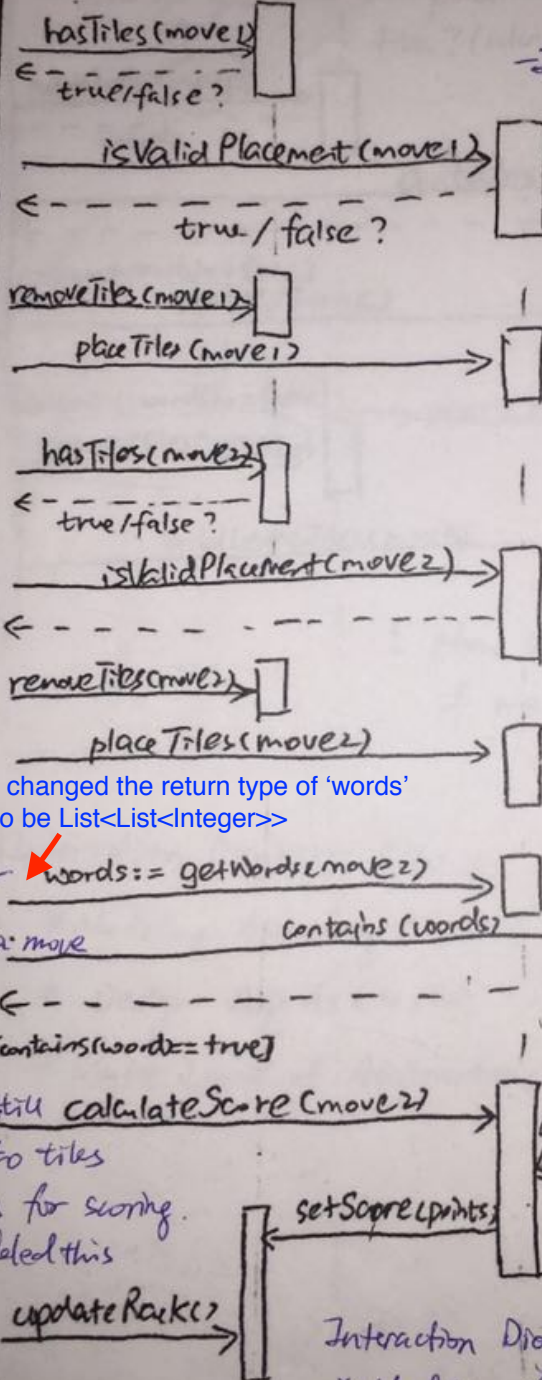 hasTiles(move1)
true/false?
isValidPlacement(move1)
true/false?
removeTiles(move1)
placeTiles(move1)
hasTiles(move2)
true/false?
isValidPlacement(move2)
removeTiles(move2)
placeTiles(move2)
changed the return type of ‘words’
o be List<List<Integer>>
words:= getWords(move2)
contains(words)
a move
contains(word)==true]
still calculateScore(move2)
to tiles
for scoring.
setScore(points)
this
updateRack()
Interaction